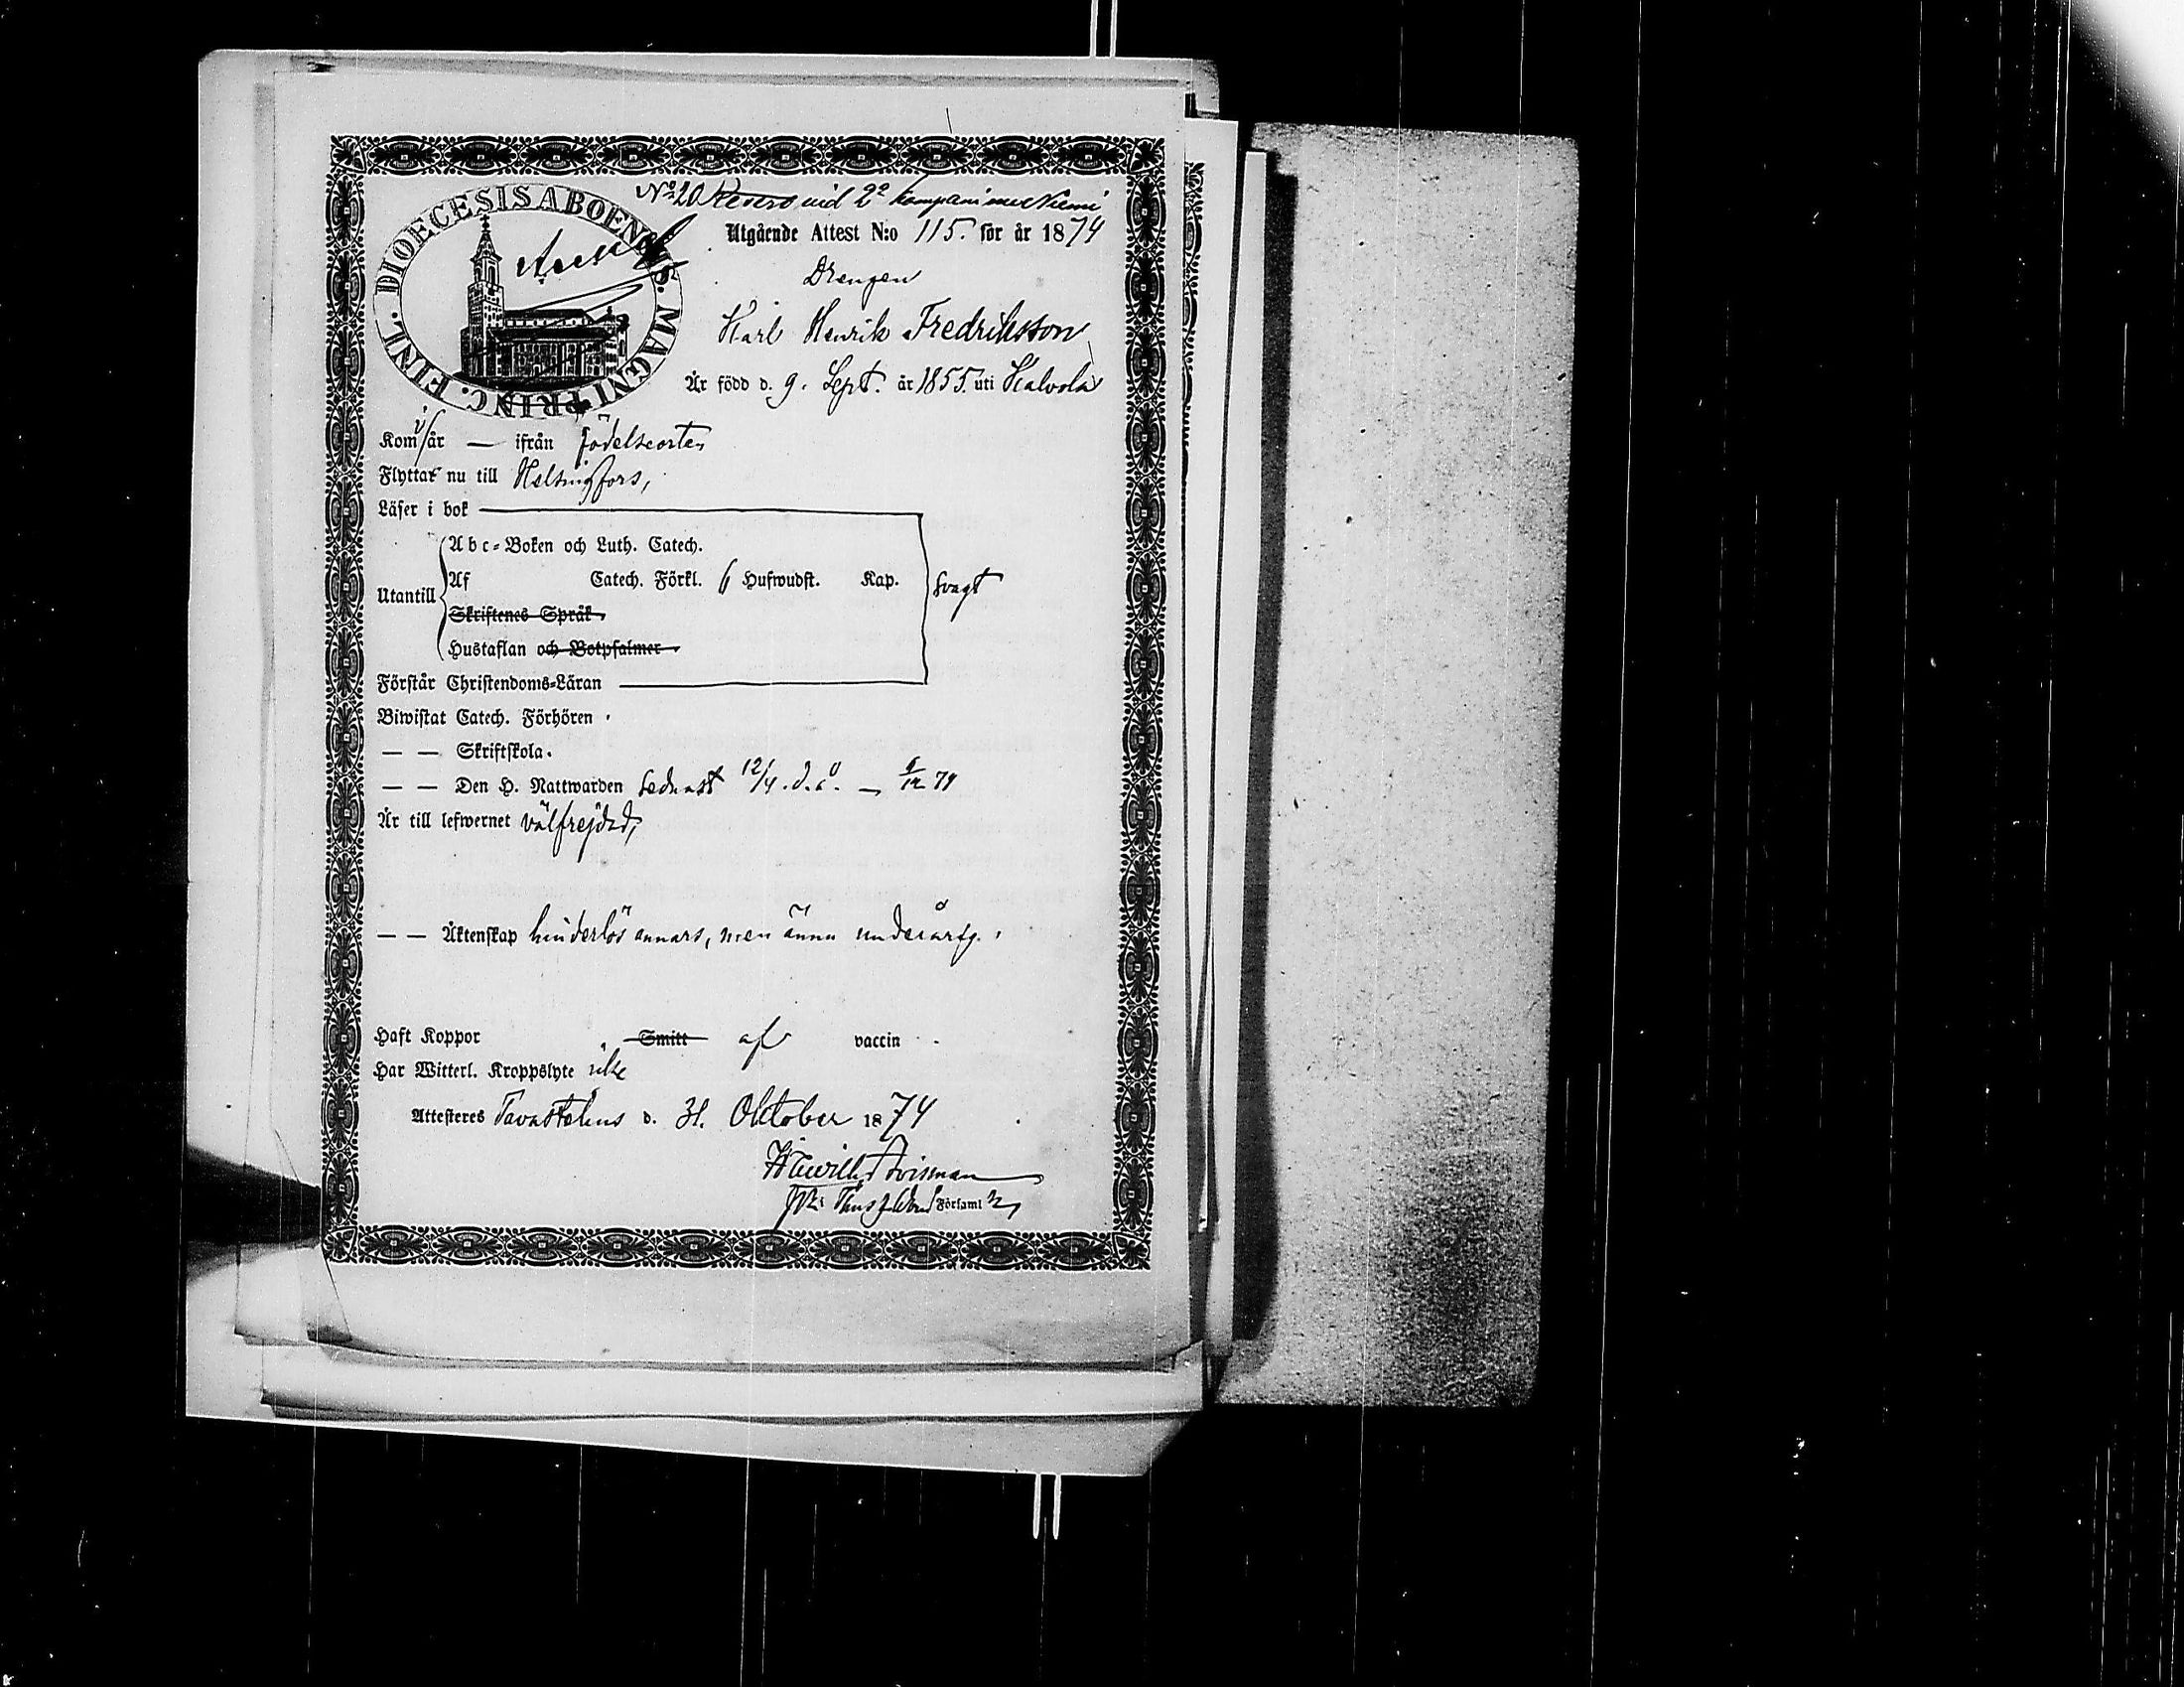 DIOECESIS ABOENSIS. MAGNI PRINC. FINL.
No 20 Reserv vid 2a kompani
Utgående Attest N:o 115. för år 1874
Drengen
Karl Henrik Fredriksson
Är född d. 9. Sept. år 1855 uti Kalvola
Kom i/år — ifrån födelseorten
Flyttar nu till Helsingfors,
Läser i bok
Utantill
Abc-Boken och Luth. Catech.
Af Catech. Förkl. 6 Hufwudst. Kap.
Skriftenes Språk
Hustaflan och Botpsalmer
svagt
Förstår Christendoms-Läran
Biwistat Catech. Förhören
— — Skriftskola.
— — Den H. Nattwarden sednast 12/4. d. å. —
Är till lefwernet välfrejdad,
— — Äktenskap hinderlös annars, men ännu underårig.
Haft Koppor Smitt af vaccin
Har Witterl. Kroppslyte icke
Attesteres Tavastehus d. 31. Oktober 1874
Församl